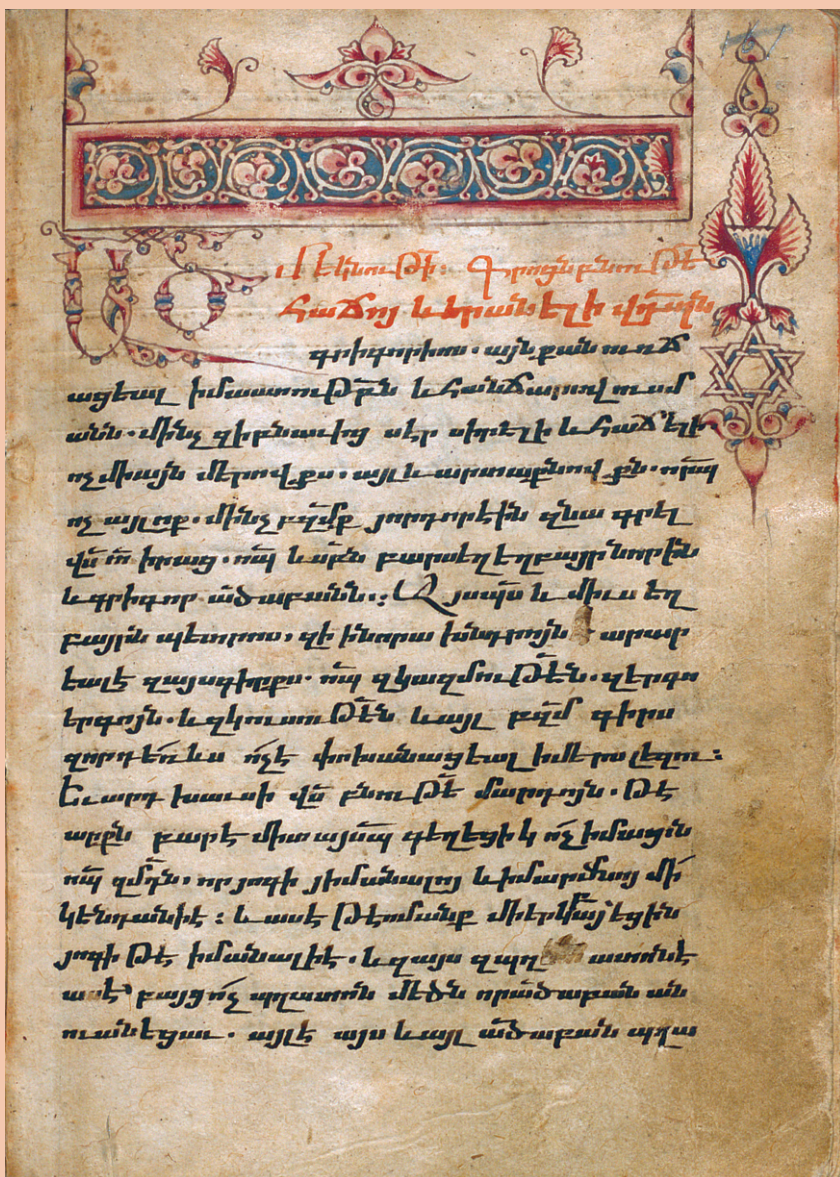 Մեկնութի։ Գրոցն բնութե
հաճոյ և երանելի վդպետն
գրիգորիոս. այնքան ուռճ
ացեալ իմաստութբն և հանճարով ուսմ
անն. մինչ զի բնաւից սէր սիրելի և հաճելի
ոչ միայն մերովքս. այլ և արտաքնովքն. որպ
ոչ այլոք. մինչ բզմք յորդորէին զնա գրել
վս ո իրաց. որպ և սրն բարսեղ եղբայր նորին
և գրիգոր ածաբանն։ Այսպս և միւս եղ
բայրն պետրոս. զի ի նորա խնդրոյն արար
եալ է զայս գիրքս. որպ զկազմութեն. զերգս
երգոյն. և զկուսութեն և այլ բզմ գիրս
զորդ ևս ոչ է փոխանացեալ ի մերս լեզու։
Եւ արդ խաւսի վս բնութե մարդոյն. թէ
արբն բարէ միտ այսպ գեղեցիկ ոչ իմացին
որպ զմդն. որ յոգի յիմանալոյ և ի մարմնոյ մի
կենդանի է։ և ասէ թէ ոմանք միերկբայեցին
յոգի թէ իմանալի է. և զայս զպղ ատոնէ
ասէ բայց ոչ պղատոն մեծն որ ածաբան ան
ուանեցաւ. այլ է այս և այլ ածաբան պղա